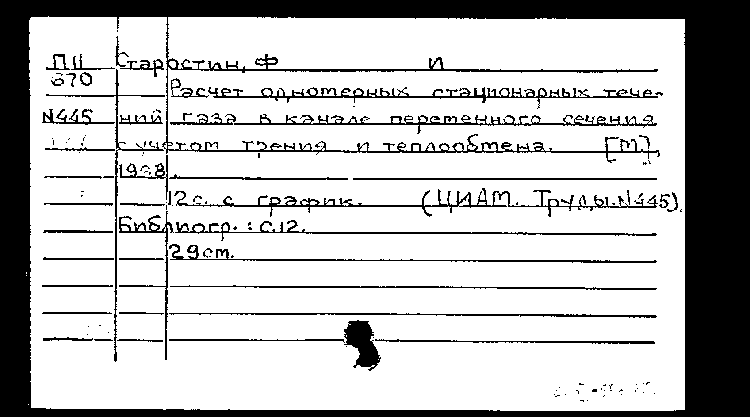 П11 Старостин, Ф И
670 Расчет одномерных стационарных тече-
N445 ний газа в канале переменного сечения
с учетом трения и теплообмена. [М.],
1968.
12 с. с график. (ЦИАМ. Труды. N445).
Библиогр.: с. 12.
29 см.